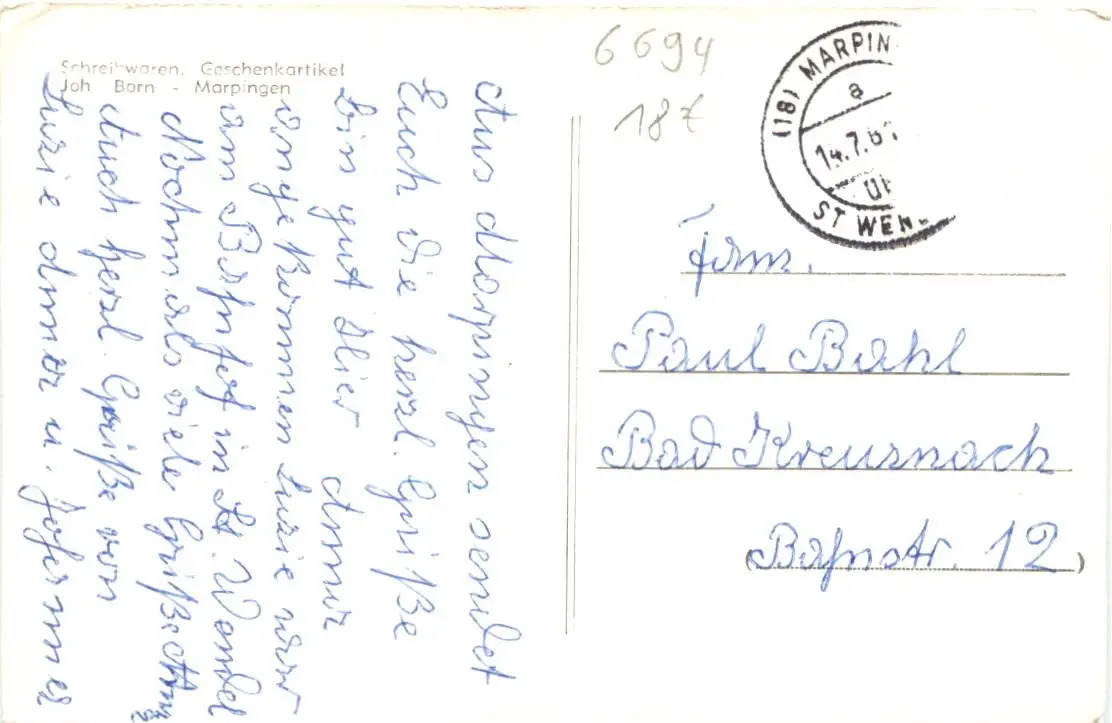 Schreibwaren, Geschenkartikel
Joh. Born - Marpingen
Aus Marpingen sendet
Euch die herzl. Grüße
bin gut hier Anna
angekommen Luzie war
am Bahnhof in St. Wendel
Nochmals viele Grüße Anna
Auch herzl. Grüße von
Luzie Anna u. Johannes
6694
18
(18) MARPIN
a
14.7.6
ST WEN
Fam.
Paul Bahl
Bad Kreuznach
Bahnstr. 12